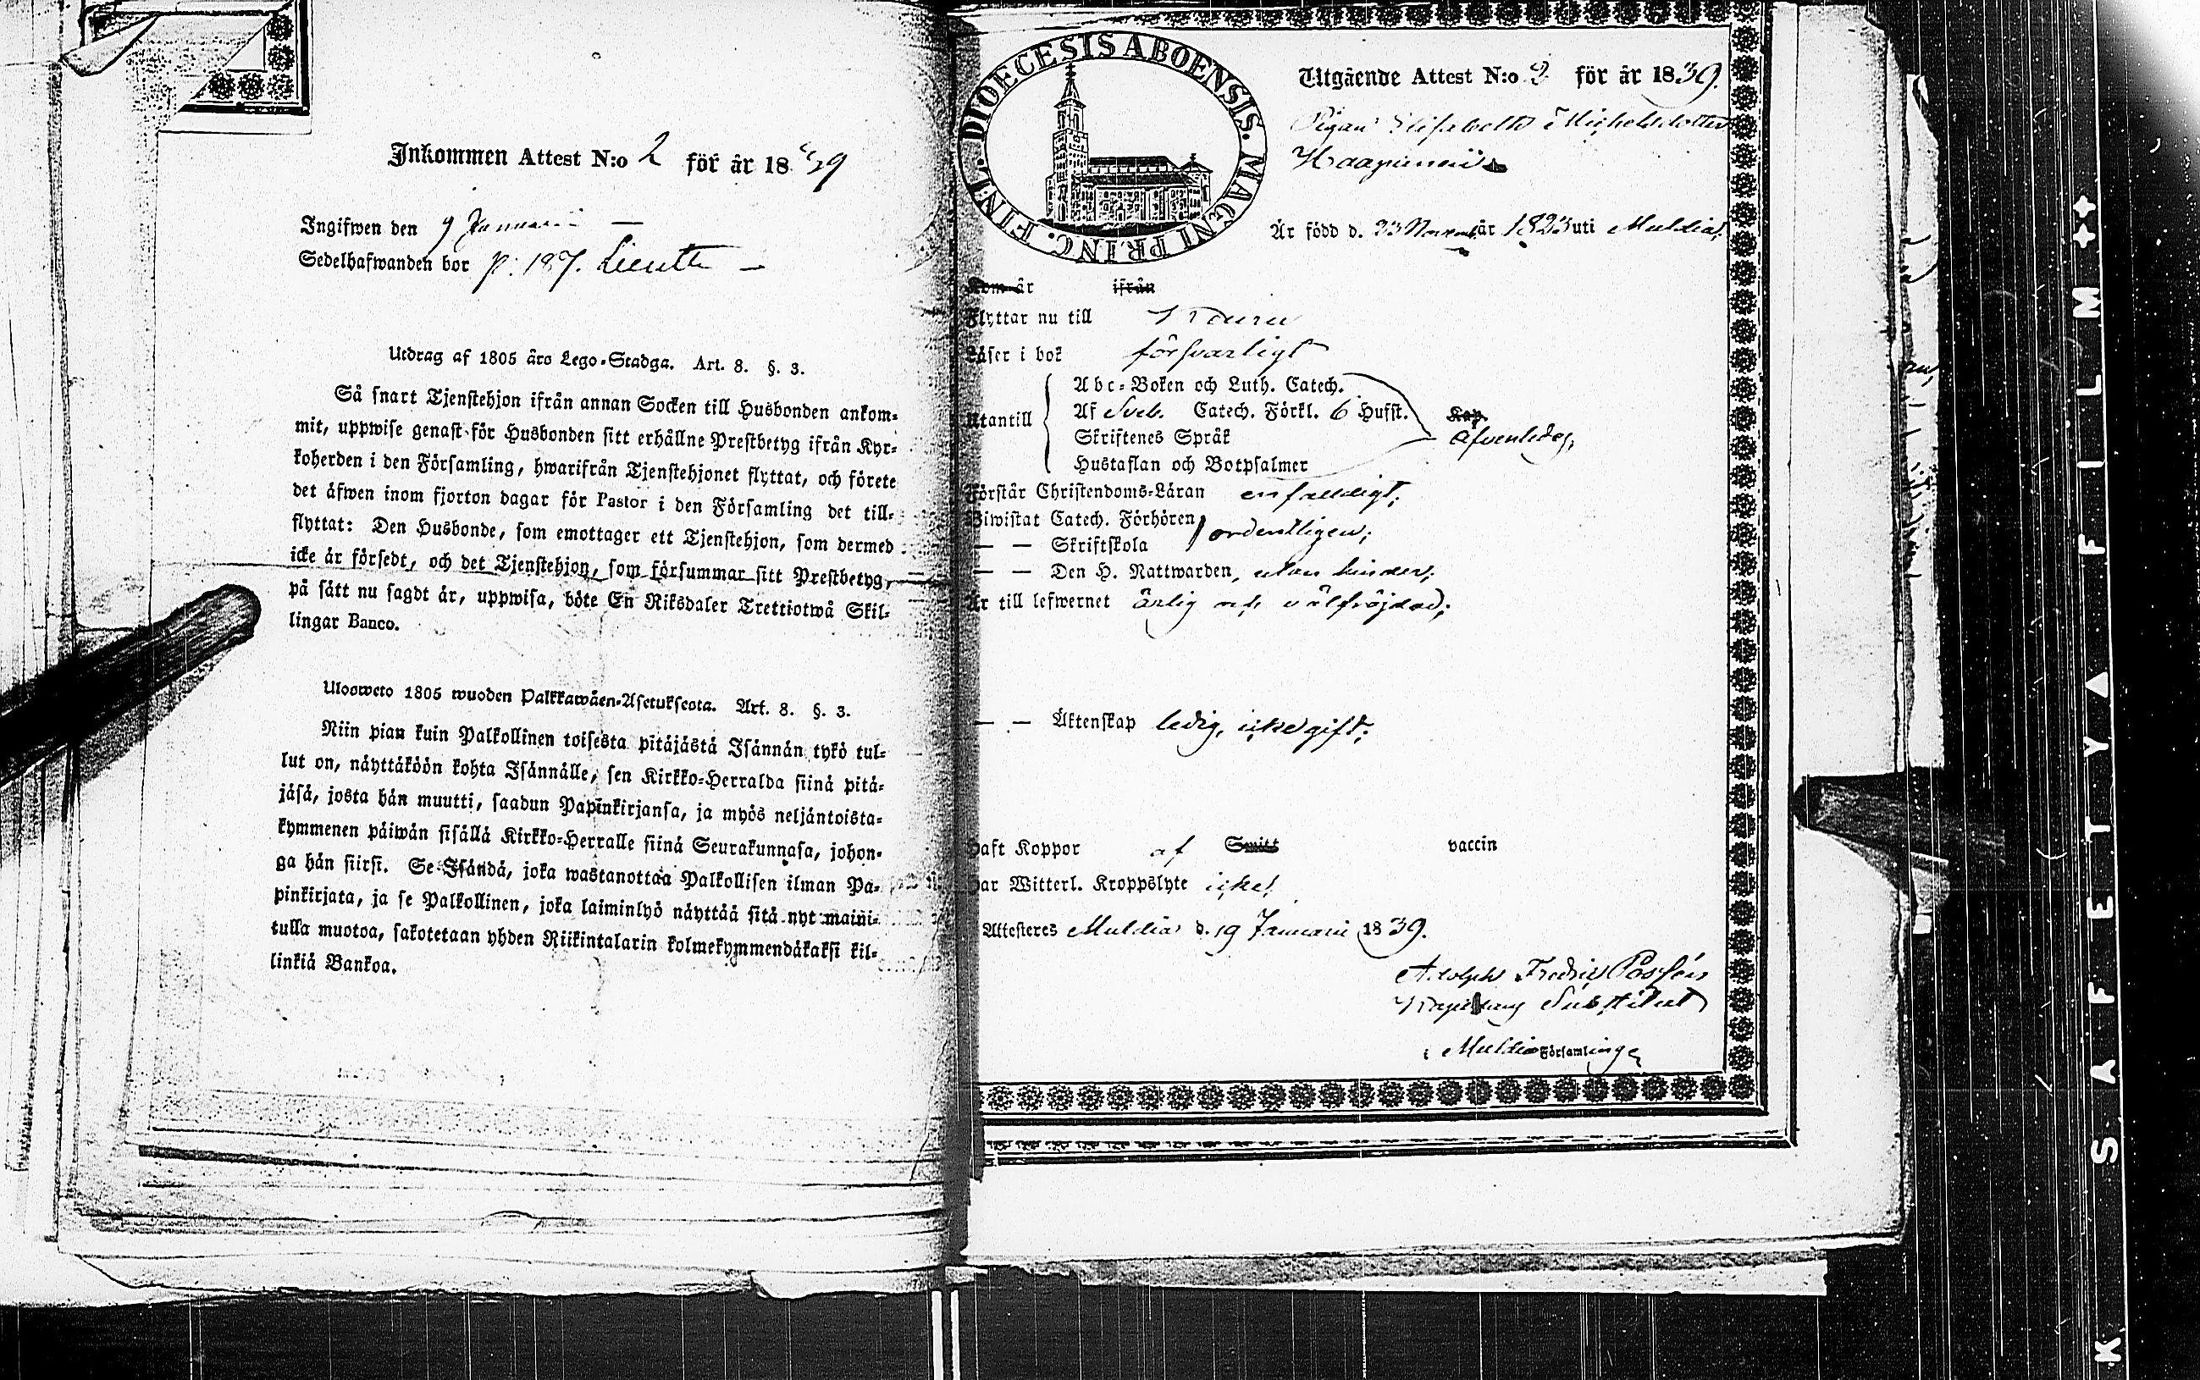 Inkommen Attest N:o 2 för år 1839
Ingifwen den 9 Januari —
Sedelhafwanden bor p: 187. —
Utdrag af 1805 års Lego-Stadga. Art. 8. §. 3.
Så snart Tjenstehjon ifrån annan Socken till Husbonden ankom-
mit, uppwise genast för Husbonden sitt erhållne Prestbetyg ifrån Kyr-
koherden i den Församling, hwarifrån Tjenstehjonet flyttat, och förete
det äfwen inom fjorton dagar för Pastor i den Församling det till-
flyttat: Den Husbonde, som emottager ett Tjenstehjon, som dermed
icke är försedt, och det Tjenstehjon, som försummar sitt Prestbetyg,
på sätt nu sagdt är, uppwisa, böte En Riksdaler Trettiotwå Skil-
lingar Banco.
Ulosweto 1805 wuoden Palkkawäen-Asetuksesta. Art. 8. §. 3.
Niin pian kuin Palkollinen toisesta pitäjästä Isännän tykö tul-
lut on, näyttäköön kohta Isännälle, sen Kirkko-Herralda siinä pitä-
jäsä, josta hän muutti, saadun Papinkirjansa, ja myös neljäntoista-
kymmenen päiwän sisällä Kirkko-Herralle siinä Seurakunnasa, johon-
ga hän siirsi. Se Isändä, joka wastanottaa Palkollisen ilman Pa-
pinkirjata, ja se Palkollinen, joka laiminlyö näyttää sitä nyt maini-
tulla muotoa, sakotetaan yhden Riikintalarin kolmekymmendäkaksi kil-
linkiä Bankoa.
FINL. DIOECESIS ABOENSIS. MAGNI PRINC.
Utgående Attest N:o 2 för år 1839.
Pigan Elisabeth Michelsdotter
Är född d. 23 Novemb. år 1823 uti Muldia,
Kom år ifrån
Flyttar nu till
Läser i bok försvarligt
Utantill
Abc-Boken och Luth. Catech.
Af Sveb. Catech. Förkl. 6 Hufst. Kap.
Skriftenes Språk afvenledes,
Hustaflan och Botpsalmer
Förstår Christendoms-Läran enfaldigt,
Biwistat Catech. Förhören
— — Skriftskola ordentligen;
— — Den H. Nattwarden, utan hinder;
Är till lefwernet ärlig och välfrejdad;
— — Äktenskap ledig, icke gift;
Haft Koppor af Smitt vaccin
Har Witterl. Kroppslyte icke,
Attesteres Muldia d. 19 Januarii 1839.
Adolph Fredric
Substitut
i Muldia Församling
K SAFETY ▲ FILM ++